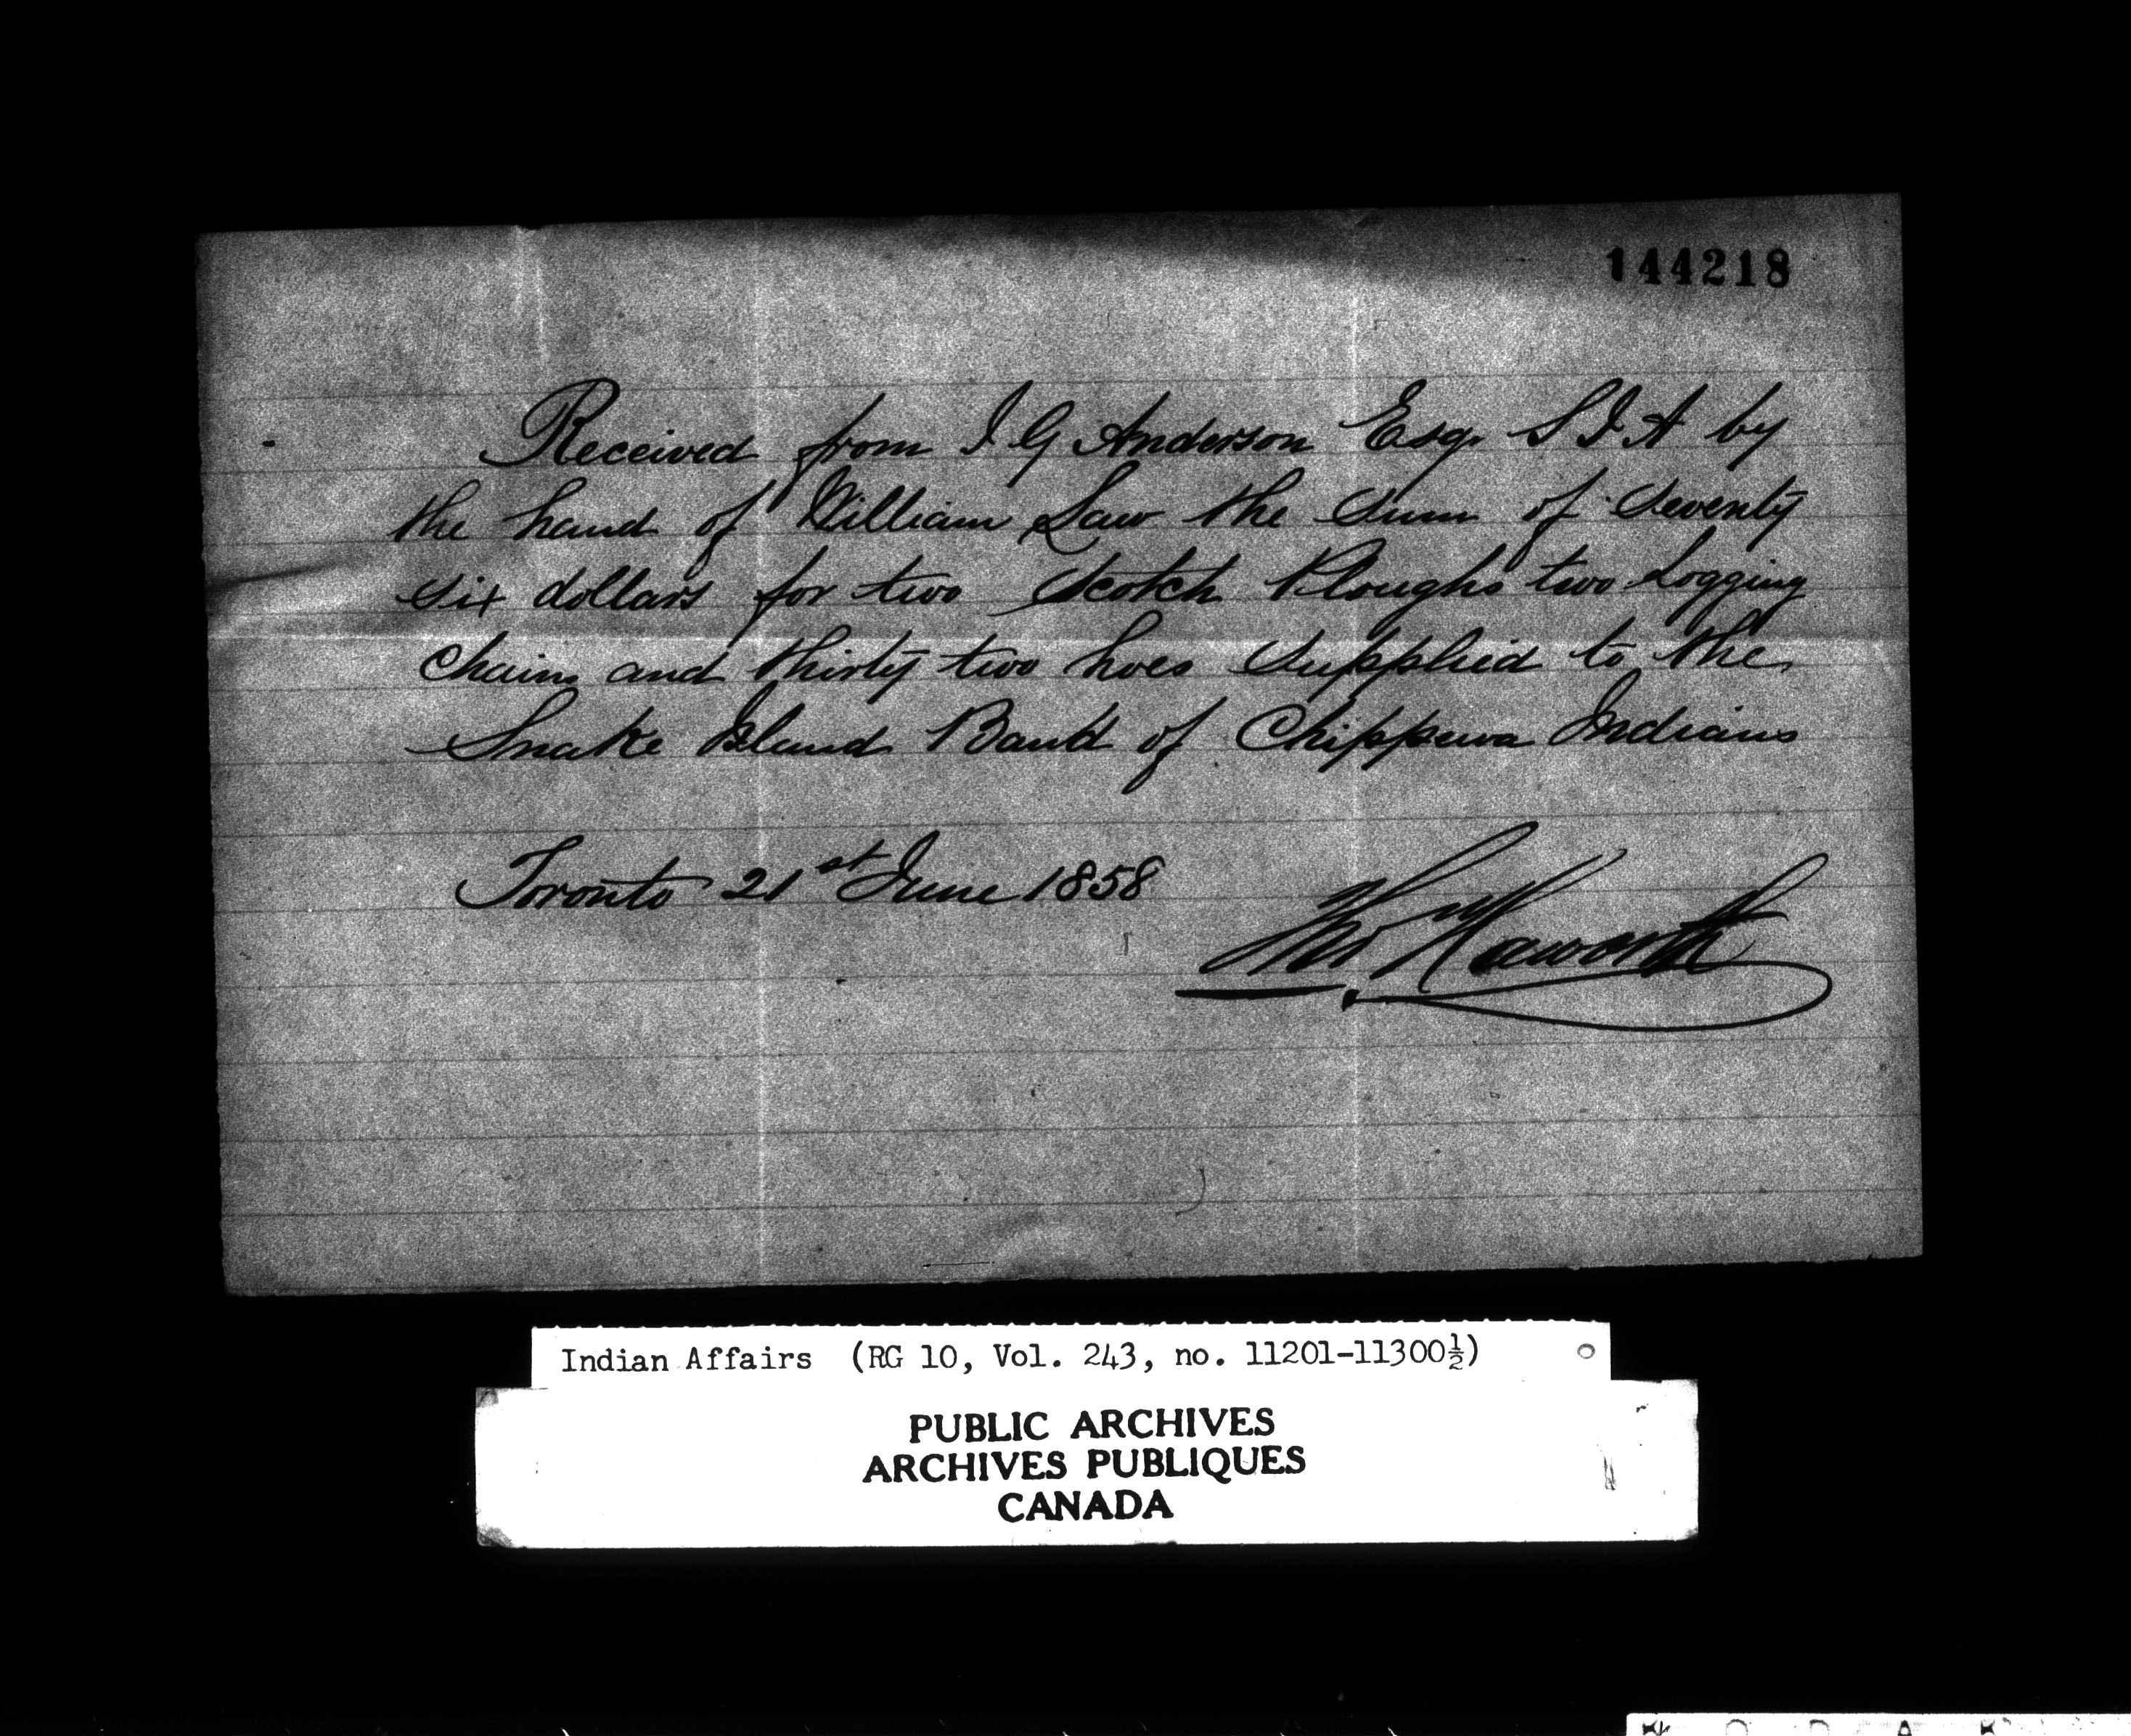 144218
Received from T G Anderson Esqr S I A by
the hand of William Law the Sum of Seventy
six dollars for two Scotch Ploughs two Logging
Chains and thirty two hoes Supplied to the
Snake Island Band of Chippewa Indians
Toronto 21st June 1858
Thos Haworth
Indian Affairs (RG 10, Vol. 243, no. 11201-11300½)
PUBLIC ARCHIVES
ARCHIVES PUBLIQUES
CANADA